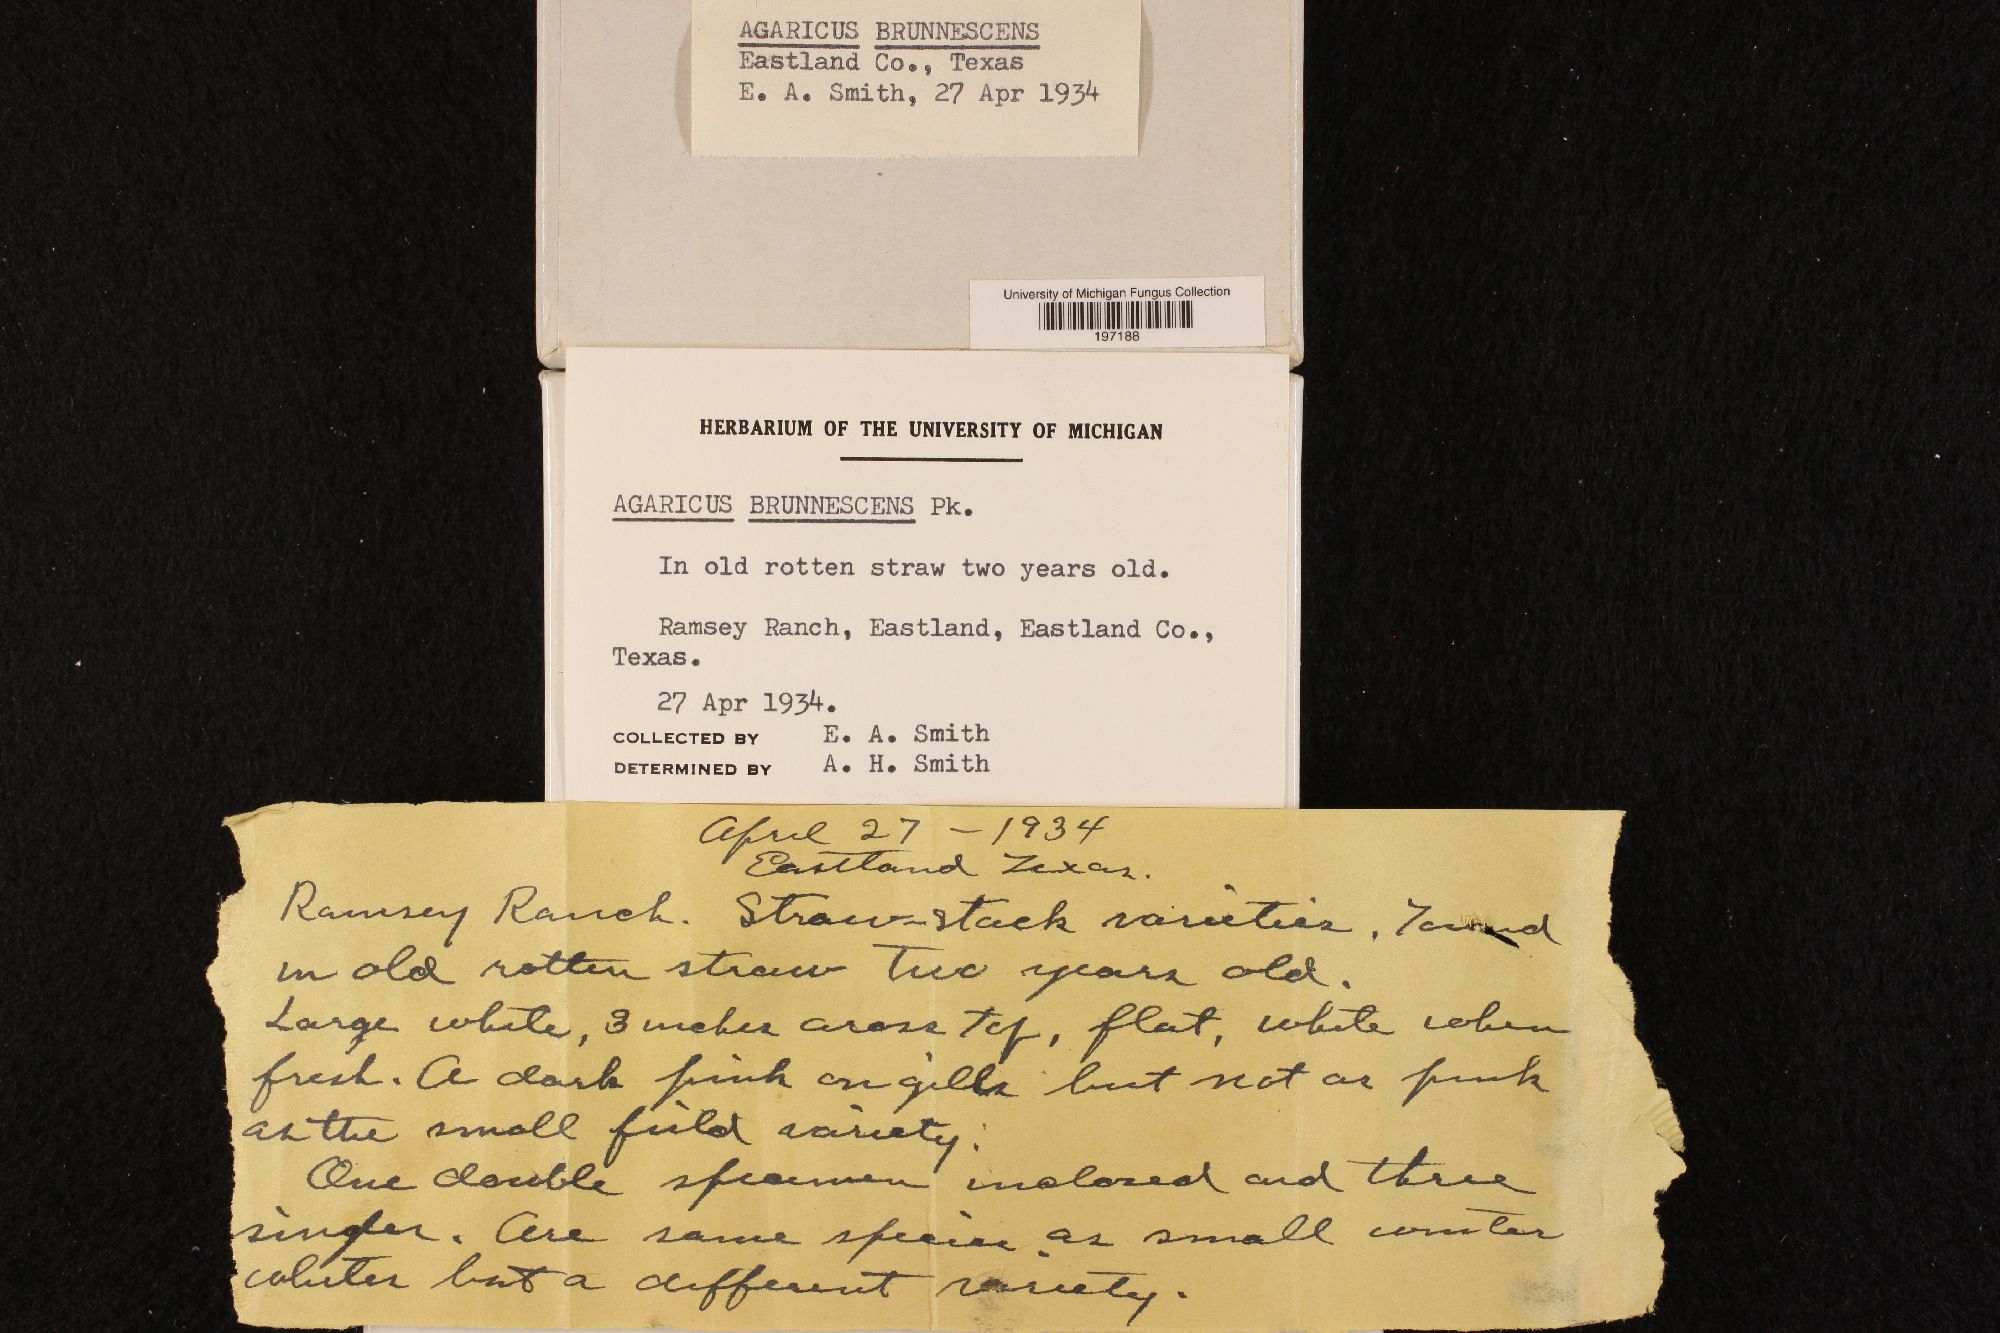 AGARICUS BRUNNESCENS
Eastland Co., Texas
E. A. Smith, 27 Apr 1934
University of Michigan Fungus Collection
197188
HERBARIUM OF THE UNIVERSITY OF MICHIGAN
AGARICUS BRUNNESCENS Pk.
In old rotten straw two years old.
Ramsey Ranch, Eastland, Eastland Co.,
Texas.
27 Apr 1934.
COLLECTED BY E. A. Smith
DETERMINED BY A. H. Smith
April 27 - 1934
Eastland Texas.
Ramsey Ranch. Straw-stack varieties. Found
in old rotten straw two years old.
Large white, 3 inches across top, flat, white when
fresh. A dark pink on gills but not as pink
as the small field variety.
One double specimen inclosed and three
singles. Are same species as small winter
whites but a different variety.